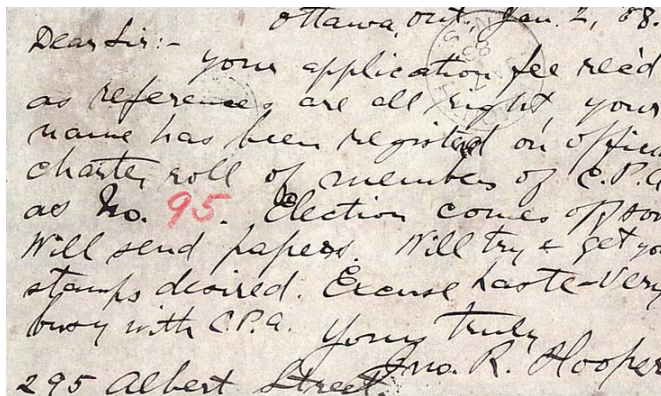 Ottawa, Ont, Jan. 2, 88.
Dear Sir:-
your application fee rec'd
as references are all right, your
name has been registered on offici
charter roll of members of C.P.A
as No. 95. Election comes off soon
Will send papers. Will try & get you
stamps desired. Excuse haste - Very
busy with C.P.A.
Yours truly
Jno. R. Hooper
295 Albert Street.